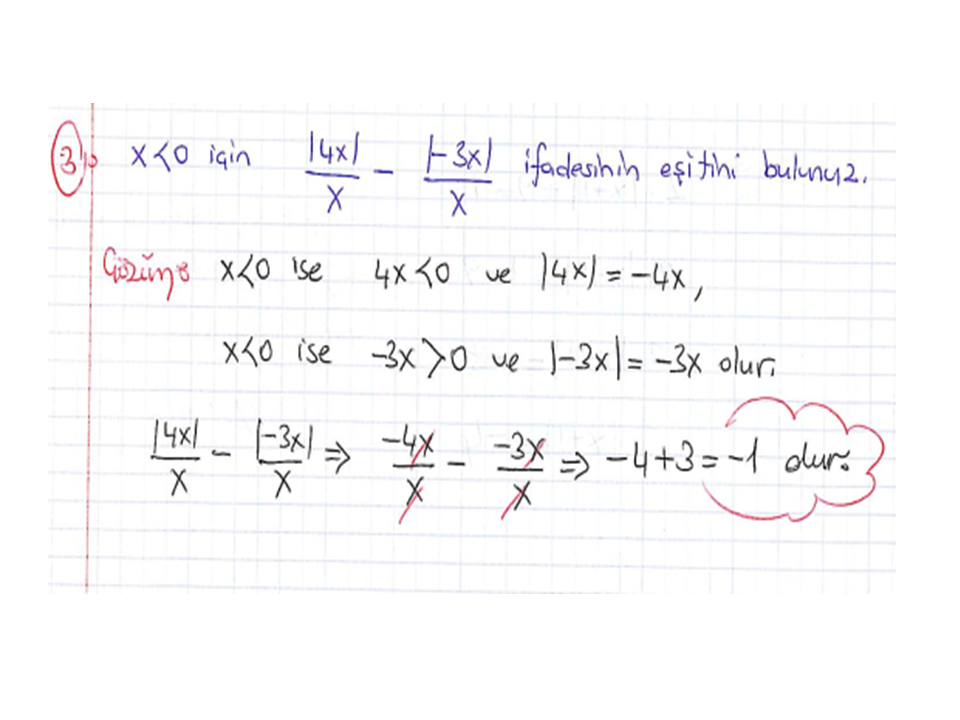 3) x<0 için |4x|/x - |-3x|/x ifadesinin eşitini bulunuz.
Çözüm: x<0 ise 4x<0 ve |4x| = -4x,
x<0 ise -3x>0 ve |-3x| = -3x olur.
|4x|/x - |-3x|/x ⇒ -4x/x - -3x/x ⇒ -4+3 = -1 olur.